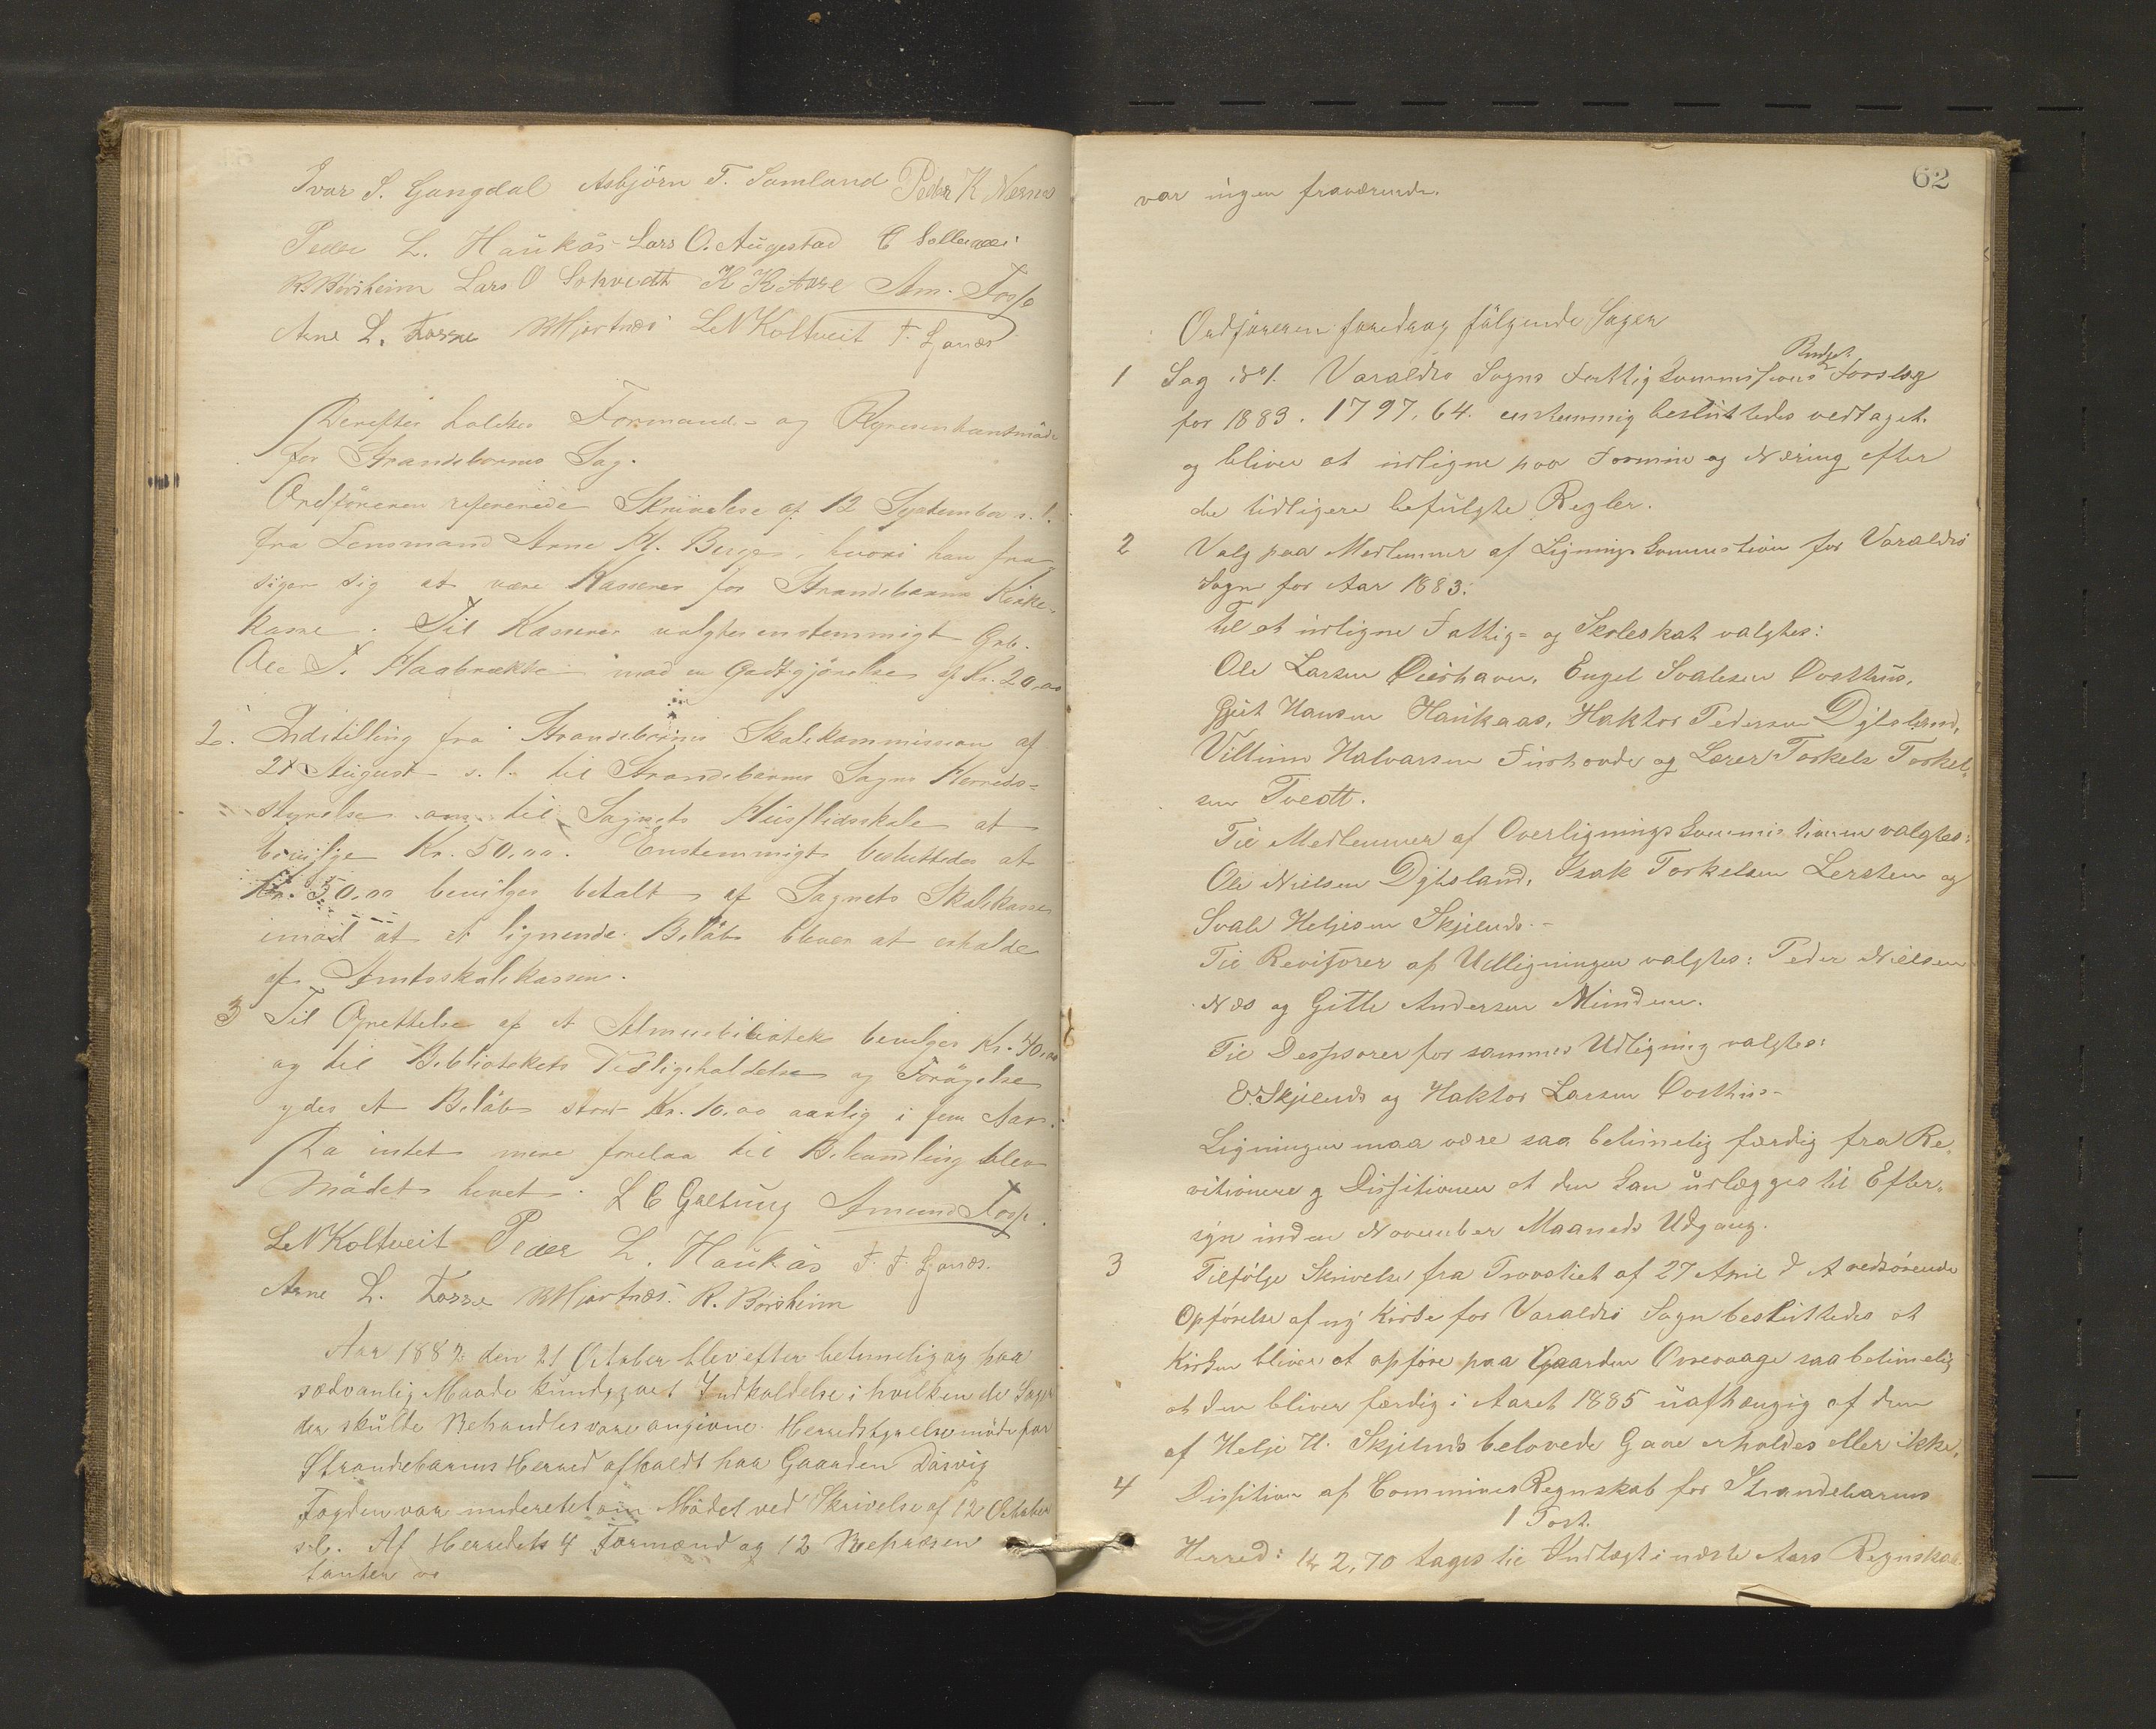 Ivar S. Gangdal Asbjörn T. Samland Peder K Nernes
Peder L. Haukås Lars O. Augestad
R. Börsheim Lars O K K Aase Am. Fosse
Arne L. Fosse Hjartnæs L N Koltveit T. Ljones
Derefter holdtes Formands- og Repræsentantmöde
for Strandebarms Sag.
Ordföreren refererede Skrivelse af 12 September s. l.
fra Lensmand Arne H. Berge, hvori han fra-
siger sig at være Kasserer for Strandebarms Kirke-
kasse. Til Kasserer valgtes enstemmigt Grb.
Ole T. Haabrække mod en Godtgjörelse af Kr. 20,00
2. Indstilling fra Strandebarms Skolekommission af
21 August s. l. til Strandebarms Sogns Herreds-
styrelse om til Sognets Husflidsskole at
bevilge Kr. 50,00. Enstemmigt besluttedes at
Kr. 50,00 bevilges betalt af Sognets Skolekasse
imod at et lignende Belöb bliver at erholde
af Amtsskolekassen.
3 Til Oprettelse af et Almuebibliotek bevilges Kr. 40,00
og til Bibliotekets Vedligeholdelse og Forögelse
ydes et Belöb stort Kr. 10.00 aarlig i fem Aar.
Da intet mere forelaa til Behandling blev
Mödet hævet. L C Galtung Amund Fosse.
L N Koltveit Peder L. Haukås T. T. Ljones.
Arne L. Fosse Hjartnæs. R. Börsheim
Aar 1882 den 21 October blev efter betimelig og paa
sædvanlig Maade kundgjort Indkaldelse i hvilken de Sager
der skulde Behandles vare angivne. Herredstyrelsemöde for
Strandebarms Herred afholdt paa Gaarden Daasvig
Fogden var underettet om Mödet ved Skrivelse af 12 October
s. l. Af Herredets 4 Formænd og 12 Repræsen
tanter va
62
var ingen fraværende.
Ordföreren foredrog fölgende Sager
1 Sag No 1. Varaldsö Sogns Fattigkommissions Budget Forslag
for 1883. 1797.64. enstemmig besluttedes vedtaget.
og bliver at udligne paa Formue og Næring efter
de tidligere befulgte Regler.
2 Valg paa Medlemmer af Ligningskommission for Varaldsö
Sogn for Aar 1883:
Til at udligne Fattig- og Skoleskat valgtes:
Ole Larsen Öierhavn, Engel Svalesen Östhus,
Gjert Hansen Haukaas, Haktor Pedersen Djtsland,
Villum Halvorsen og Lærer Torkels Torkel-
sen Tvedt.
Til Medlemmer af Overligningskommissionen valgtes:
Ole Nielsen Djtsland, Isak Torkelsen Lersten og
Svale Heljesen Skjelnes. -
Til Revisorer af Udligningen valgtes: Peder Nielsen
Næs og Gitle Andersen Mundem.
Til Desisorer for sammes Udligning valgtes:
E. Skjelnes og Haktor Larsen Östhus -
Ligningen maa være saa betimelig færdig fra Re-
vitionen og Dissitionen at den kan udlægges til Efter-
syn inden November Maaneds Udgang.
3 Tilfölge Skrivelse fra Provstiet af 27 April d A vedrörende
Opförelse af ny Kirke for Varaldsö Sogn besluttedes at
Kirken bliver at opföre paa Gaarden Öierevaage saa betimelig
at den bliver færdig i Aaret 1885 uafhængig af den
af Helje H. Skjelnes belovede Gave erholdes eller ikke.
4 Dissition af Communes Regnskab for Strandebarms
1 Post.
Herred: Kr 2,70 tages til Indtægt i næste Aars Regnskab.